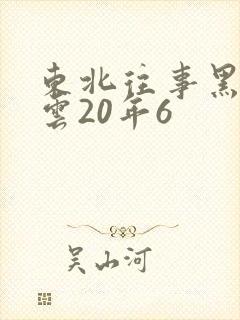 東北往事黑
雲20年6
吴山河